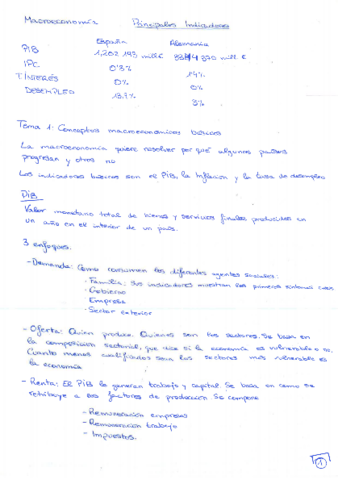 Macroeconomía Principales Indicadores
España Alemania
PIB 1,202.193 mill €
IPC 0'3% 1'4%
T INTERÉS 0% 0%
DESEMPLEO 13.7% 3%
Tema 1: Conceptos macroeconómicos básicos
La macroeconomía quiere resolver por qué algunos países
progresan y otros no
Los indicadores básicos son el PIB, la Inflación y la tasa de desempleo
PIB
Valor monetario total de bienes y servicios finales producidos en
un año en el interior de un país.
3 enfoques:
- Demanda: Como consumen los diferentes agentes sociales:
· Familia: Sus indicadores muestran los primeros síntomas
· Gobierno
· Empresa
· Sector exterior
- Oferta: Quien produce. Quienes son los sectores. Se basa en
la composición sectorial, que dice si la economía es vulnerable o no.
Cuanto menos cualificados sean los sectores más vulnerable es
la economía
- Renta: El PIB lo generan trabajo y capital. Se basa en como se
retribuye a los factores de producción. Se compone
- Remuneración empresas
- Remuneración trabajo
- Impuestos.
1